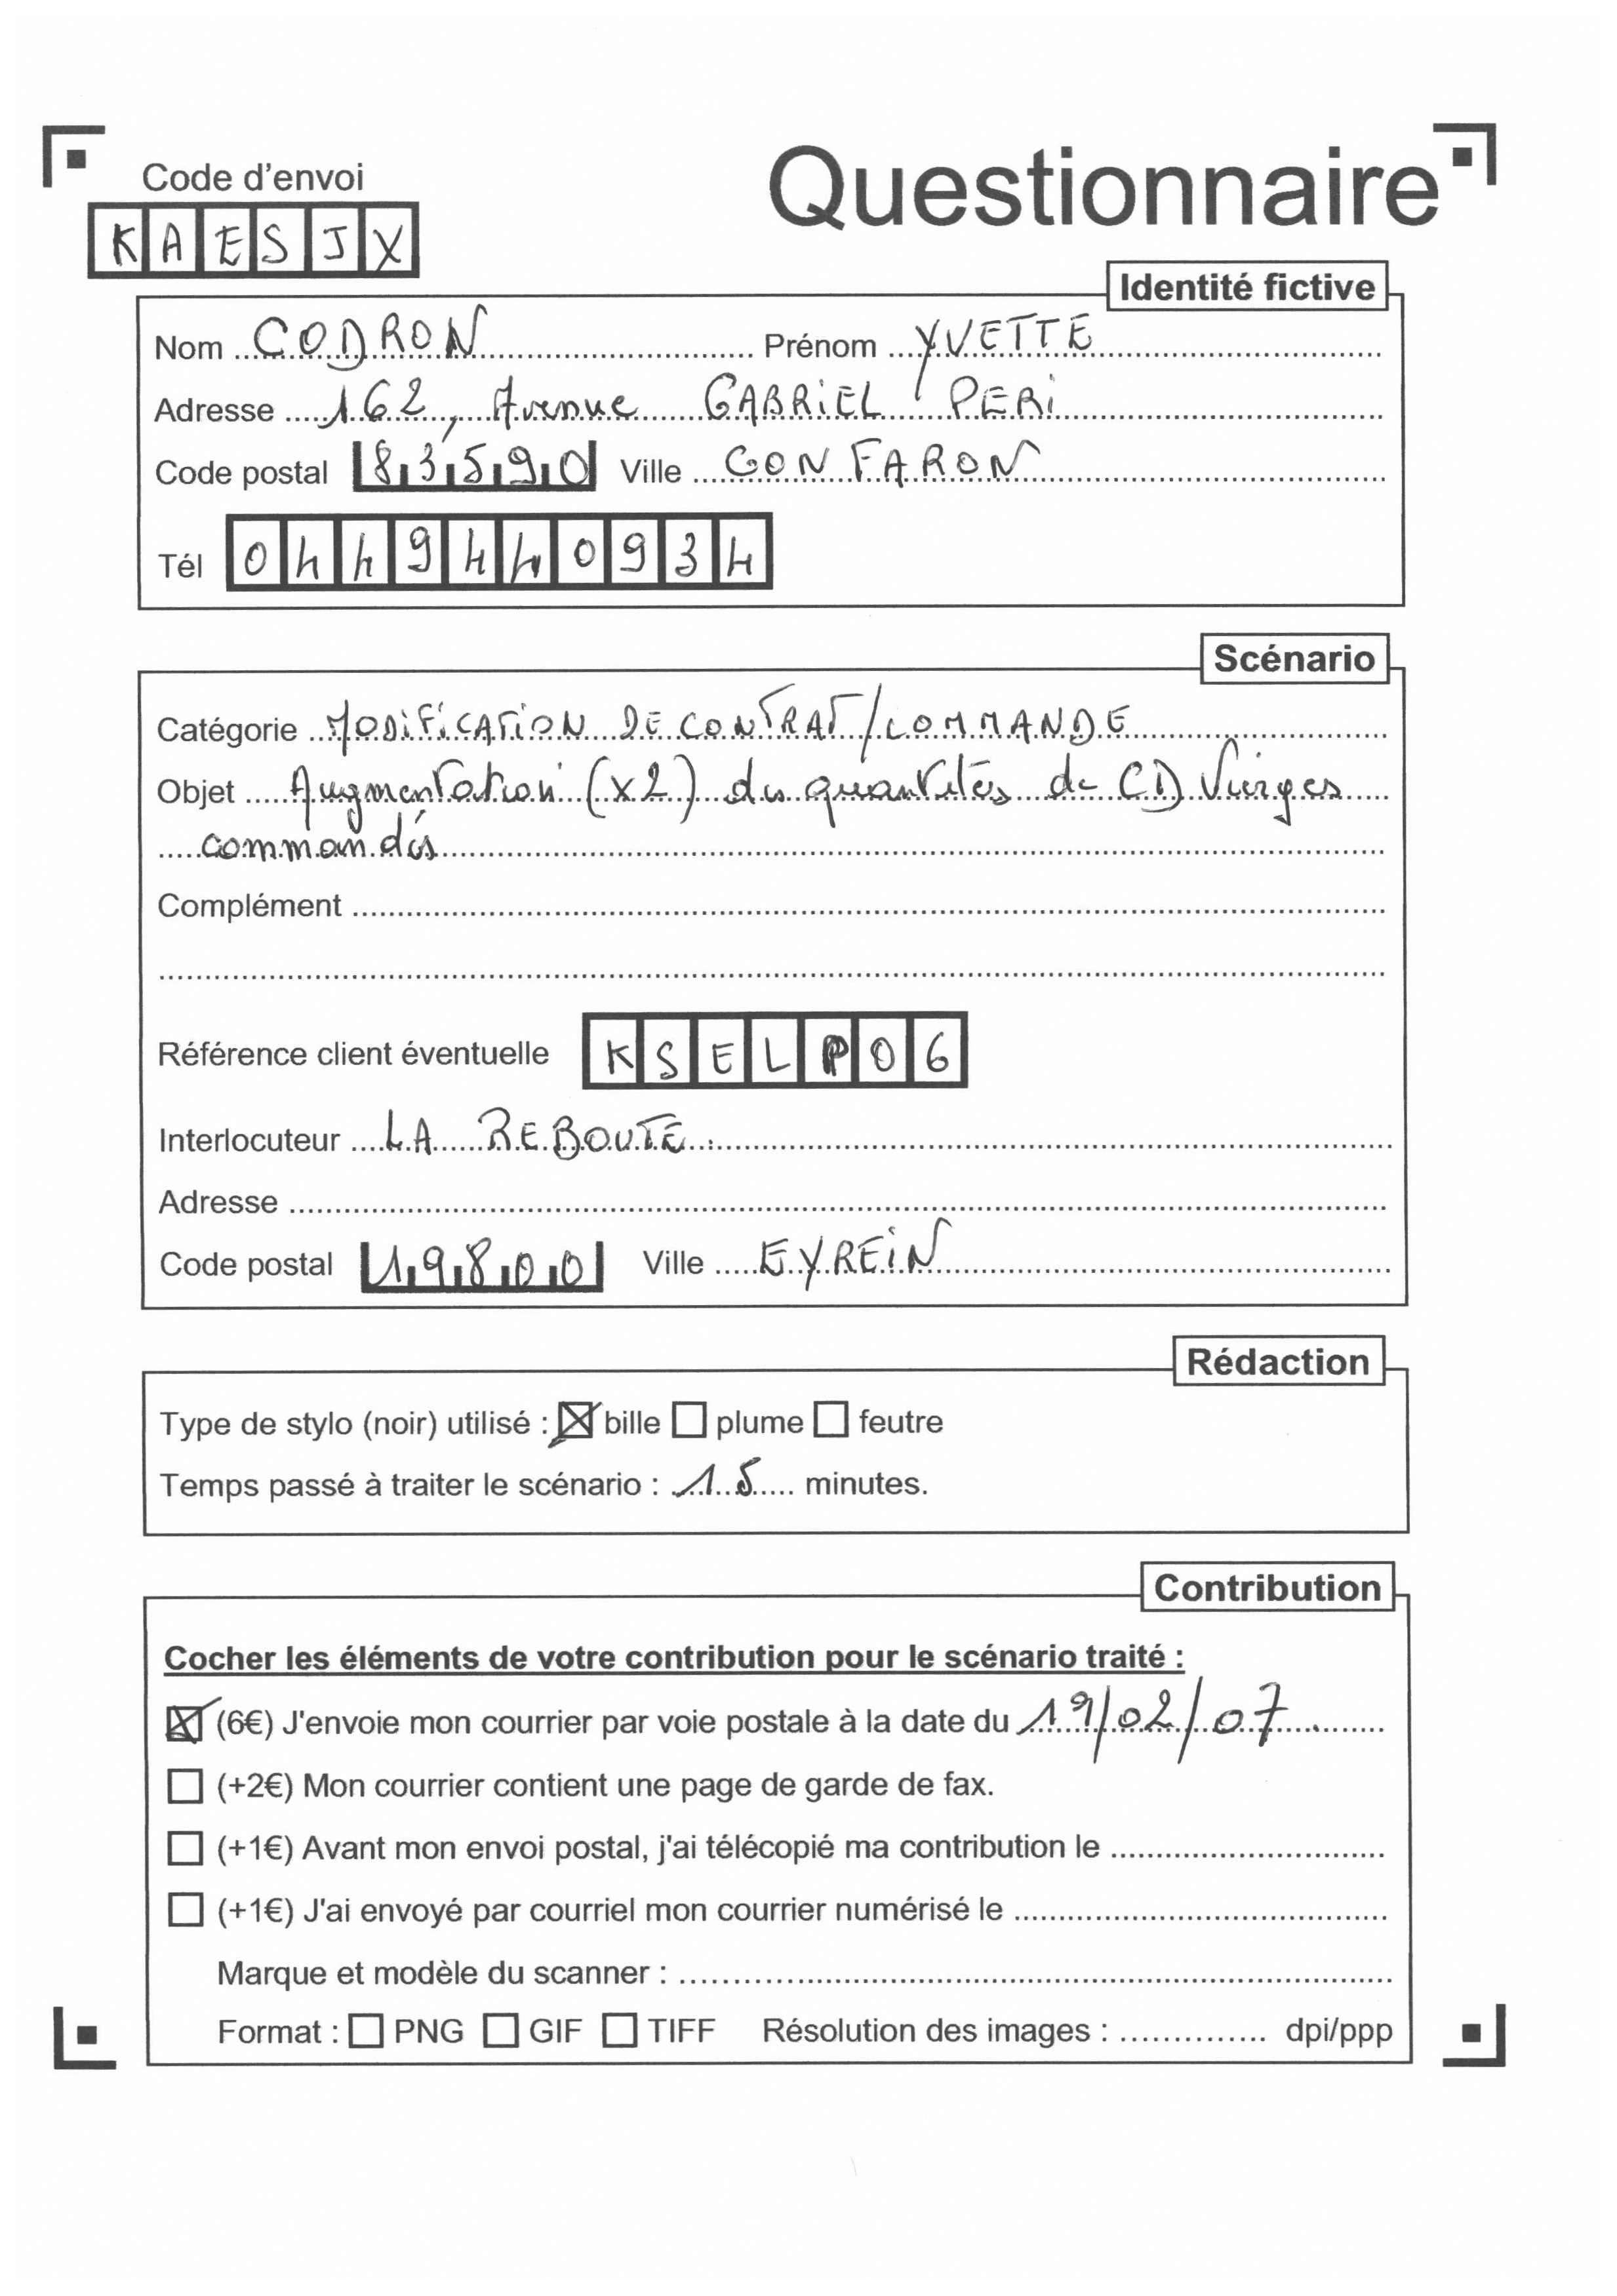 Code d'envoi
Questionnaire
KAESJX
Identité fictive
Nom CODRON Prénom YVETTE
Adresse 162, Avenue GABRIEL PERI
Code postal 83590 Ville GONFARON
Tél 0449440934
Scénario
Catégorie MODIFICATION DE CONTRAT/COMMANDE
Objet Augmentation (x2) des quantités de CD Vierges
commandés
Complément
Référence client éventuelle KSELP06
Interlocuteur LA REBOUTE
Adresse
Code postal 19800 Ville EYREIN
Rédaction
Type de stylo (noir) utilisé : bille plume feutre
Temps passé à traiter le scénario : 15 minutes.
Contribution
Cocher les éléments de votre contribution pour le scénario traité :
(6€) J'envoie mon courrier par voie postale à la date du 19/02/07
(+2€) Mon courrier contient une page de garde de fax.
(+1€) Avant mon envoi postal, j'ai télécopié ma contribution le
(+1€) J'ai envoyé par courriel mon courrier numérisé le
Marque et modèle du scanner :
Format : PNG GIF TIFF Résolution des images : dpi/ppp